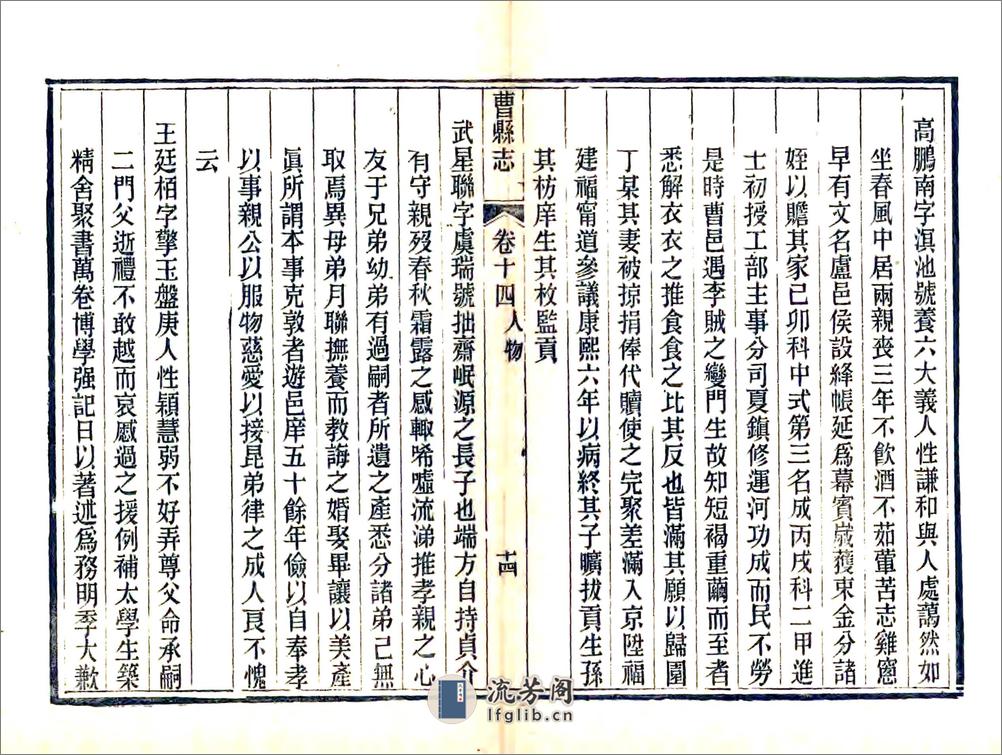 高鵬南字溟池號養六大義人性謙和與人處藹然如
坐春風中居兩親喪三年不飲酒不茹葷苦志雞窻
早有文名盧邑侯設絳帳延爲幕賓歲獲束金分諸
姪以贍其家己卯科中式第三名成丙戌科二甲進
士初授工部主事分司夏鎮修運河功成而民不勞
是時曹邑遇李賊之變門生故知短褐重繭而至者
悉解衣衣之推食食之比其反也皆滿其願以歸圍
丁某其妻被掠捐俸代贖使之完聚差滿入京陞福
建福甯道參議康熙六年以病終其子曠拔貢生孫
其枋庠生其枚監貢
曹縣志
卷十四人物
十四
武星聯字虞瑞號拙齋岷源之長子也端方自持貞介
有守親歿春秋霜露之感輙唏噓流涕推孝親之心
友于兄弟幼弟有過嗣者所遺之產悉分諸弟己無
取焉異母弟月聯撫養而教誨之婚娶畢讓以美產
眞所謂本事克敦者遊邑庠五十餘年儉以自奉孝
以事親公以服物慈愛以接昆弟律之成人良不愧
云
王廷栢字擎玉盤庚人性穎慧弱不好弄尊父命承嗣
二門父逝禮不敢越而哀慼過之援例補太學生築
精舍聚書萬卷博學强記日以著述爲務明季大歉
流芳阁
lfglib.cn